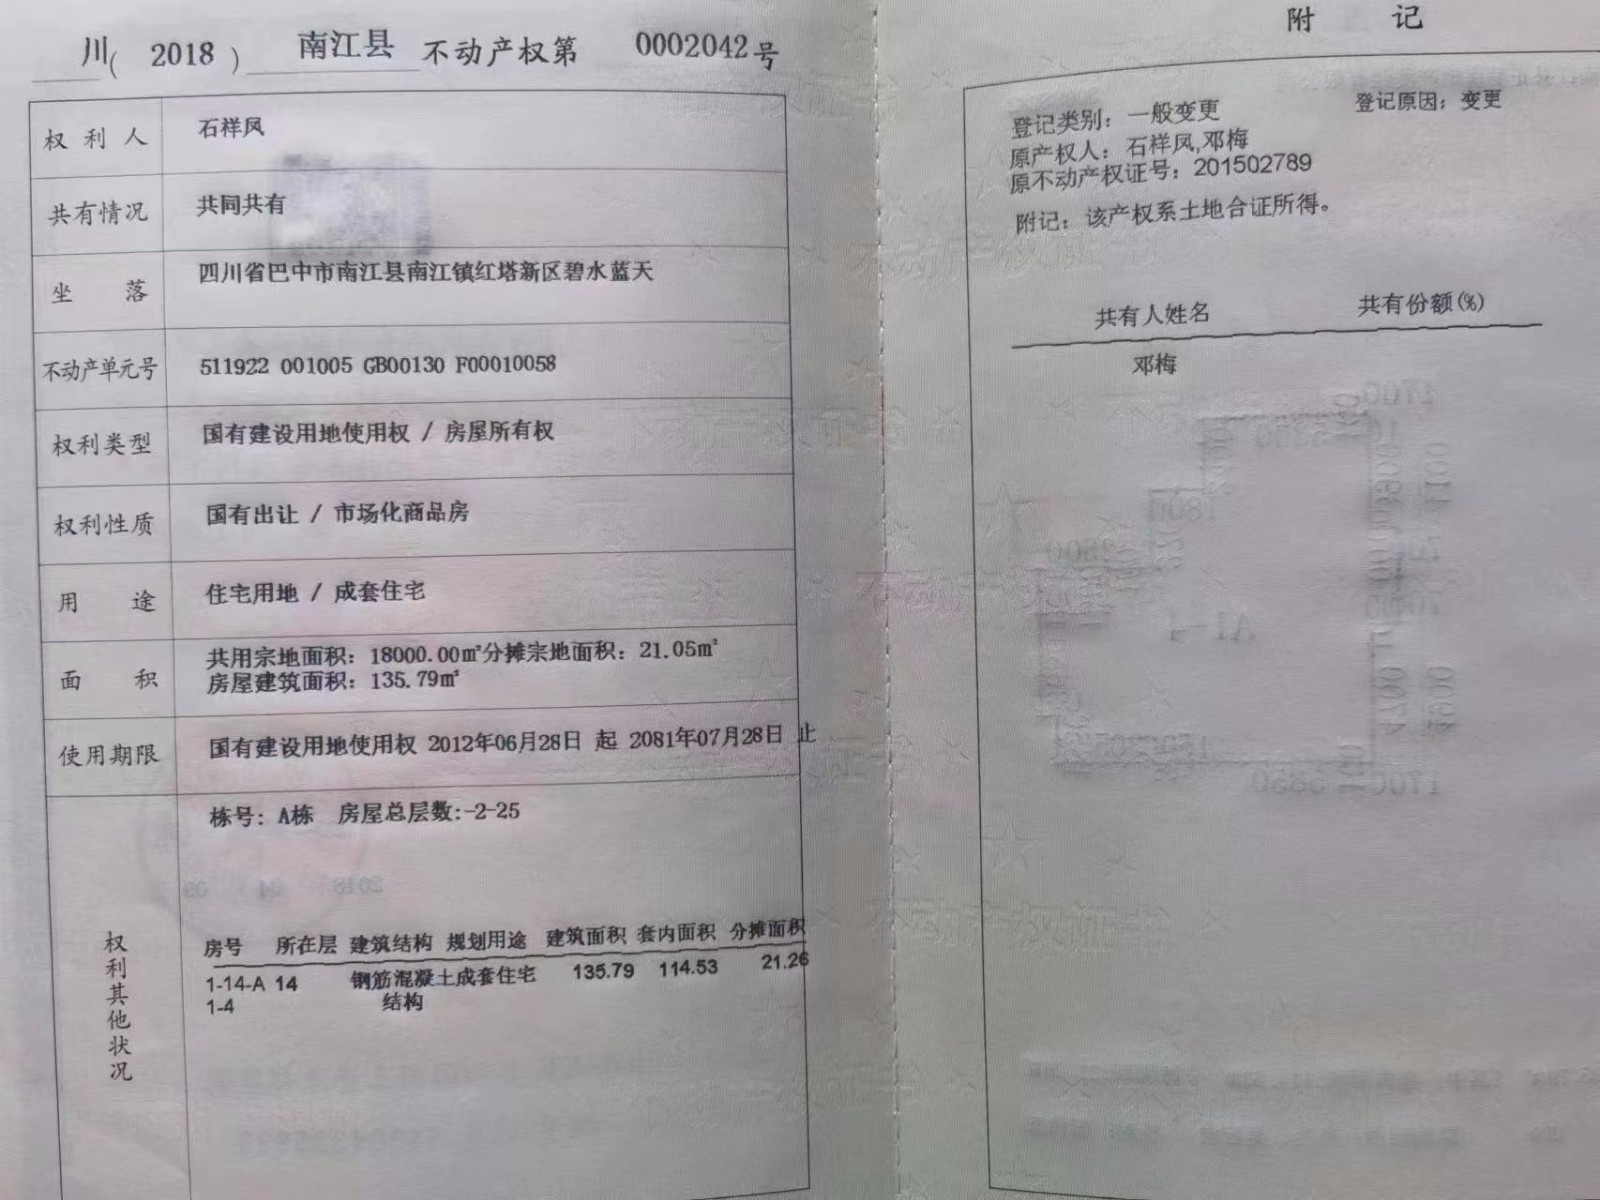 川( 2018 ) 南江县 不动产权第 0002042号
权利人 石祥凤
共有情况 共同共有
坐落 四川省巴中市南江县南江镇红塔新区碧水蓝天
不动产单元号 511922 001005 GB00130 F00010058
权利类型 国有建设用地使用权 / 房屋所有权
权利性质 国有出让 / 市场化商品房
用途 住宅用地 / 成套住宅
面积 共用宗地面积：18000.00㎡分摊宗地面积：21.05㎡
房屋建筑面积：135.79㎡
使用期限 国有建设用地使用权 2012年06月28日 起 2081年07月28日 止
权利其他状况
栋号: A栋 房屋总层数:-2-25
房号 所在层 建筑结构 规划用途 建筑面积 套内面积 分摊面积
1-14-A 14 钢筋混凝土成套住宅 135.79 114.53 21.26
1-4 结构
附 记
登记类别：一般变更 登记原因：变更
原产权人：石祥凤,邓梅
原不动产权证号：201502789
附记：该产权系土地合证所得。
共有人姓名 共有份额(%)
邓梅